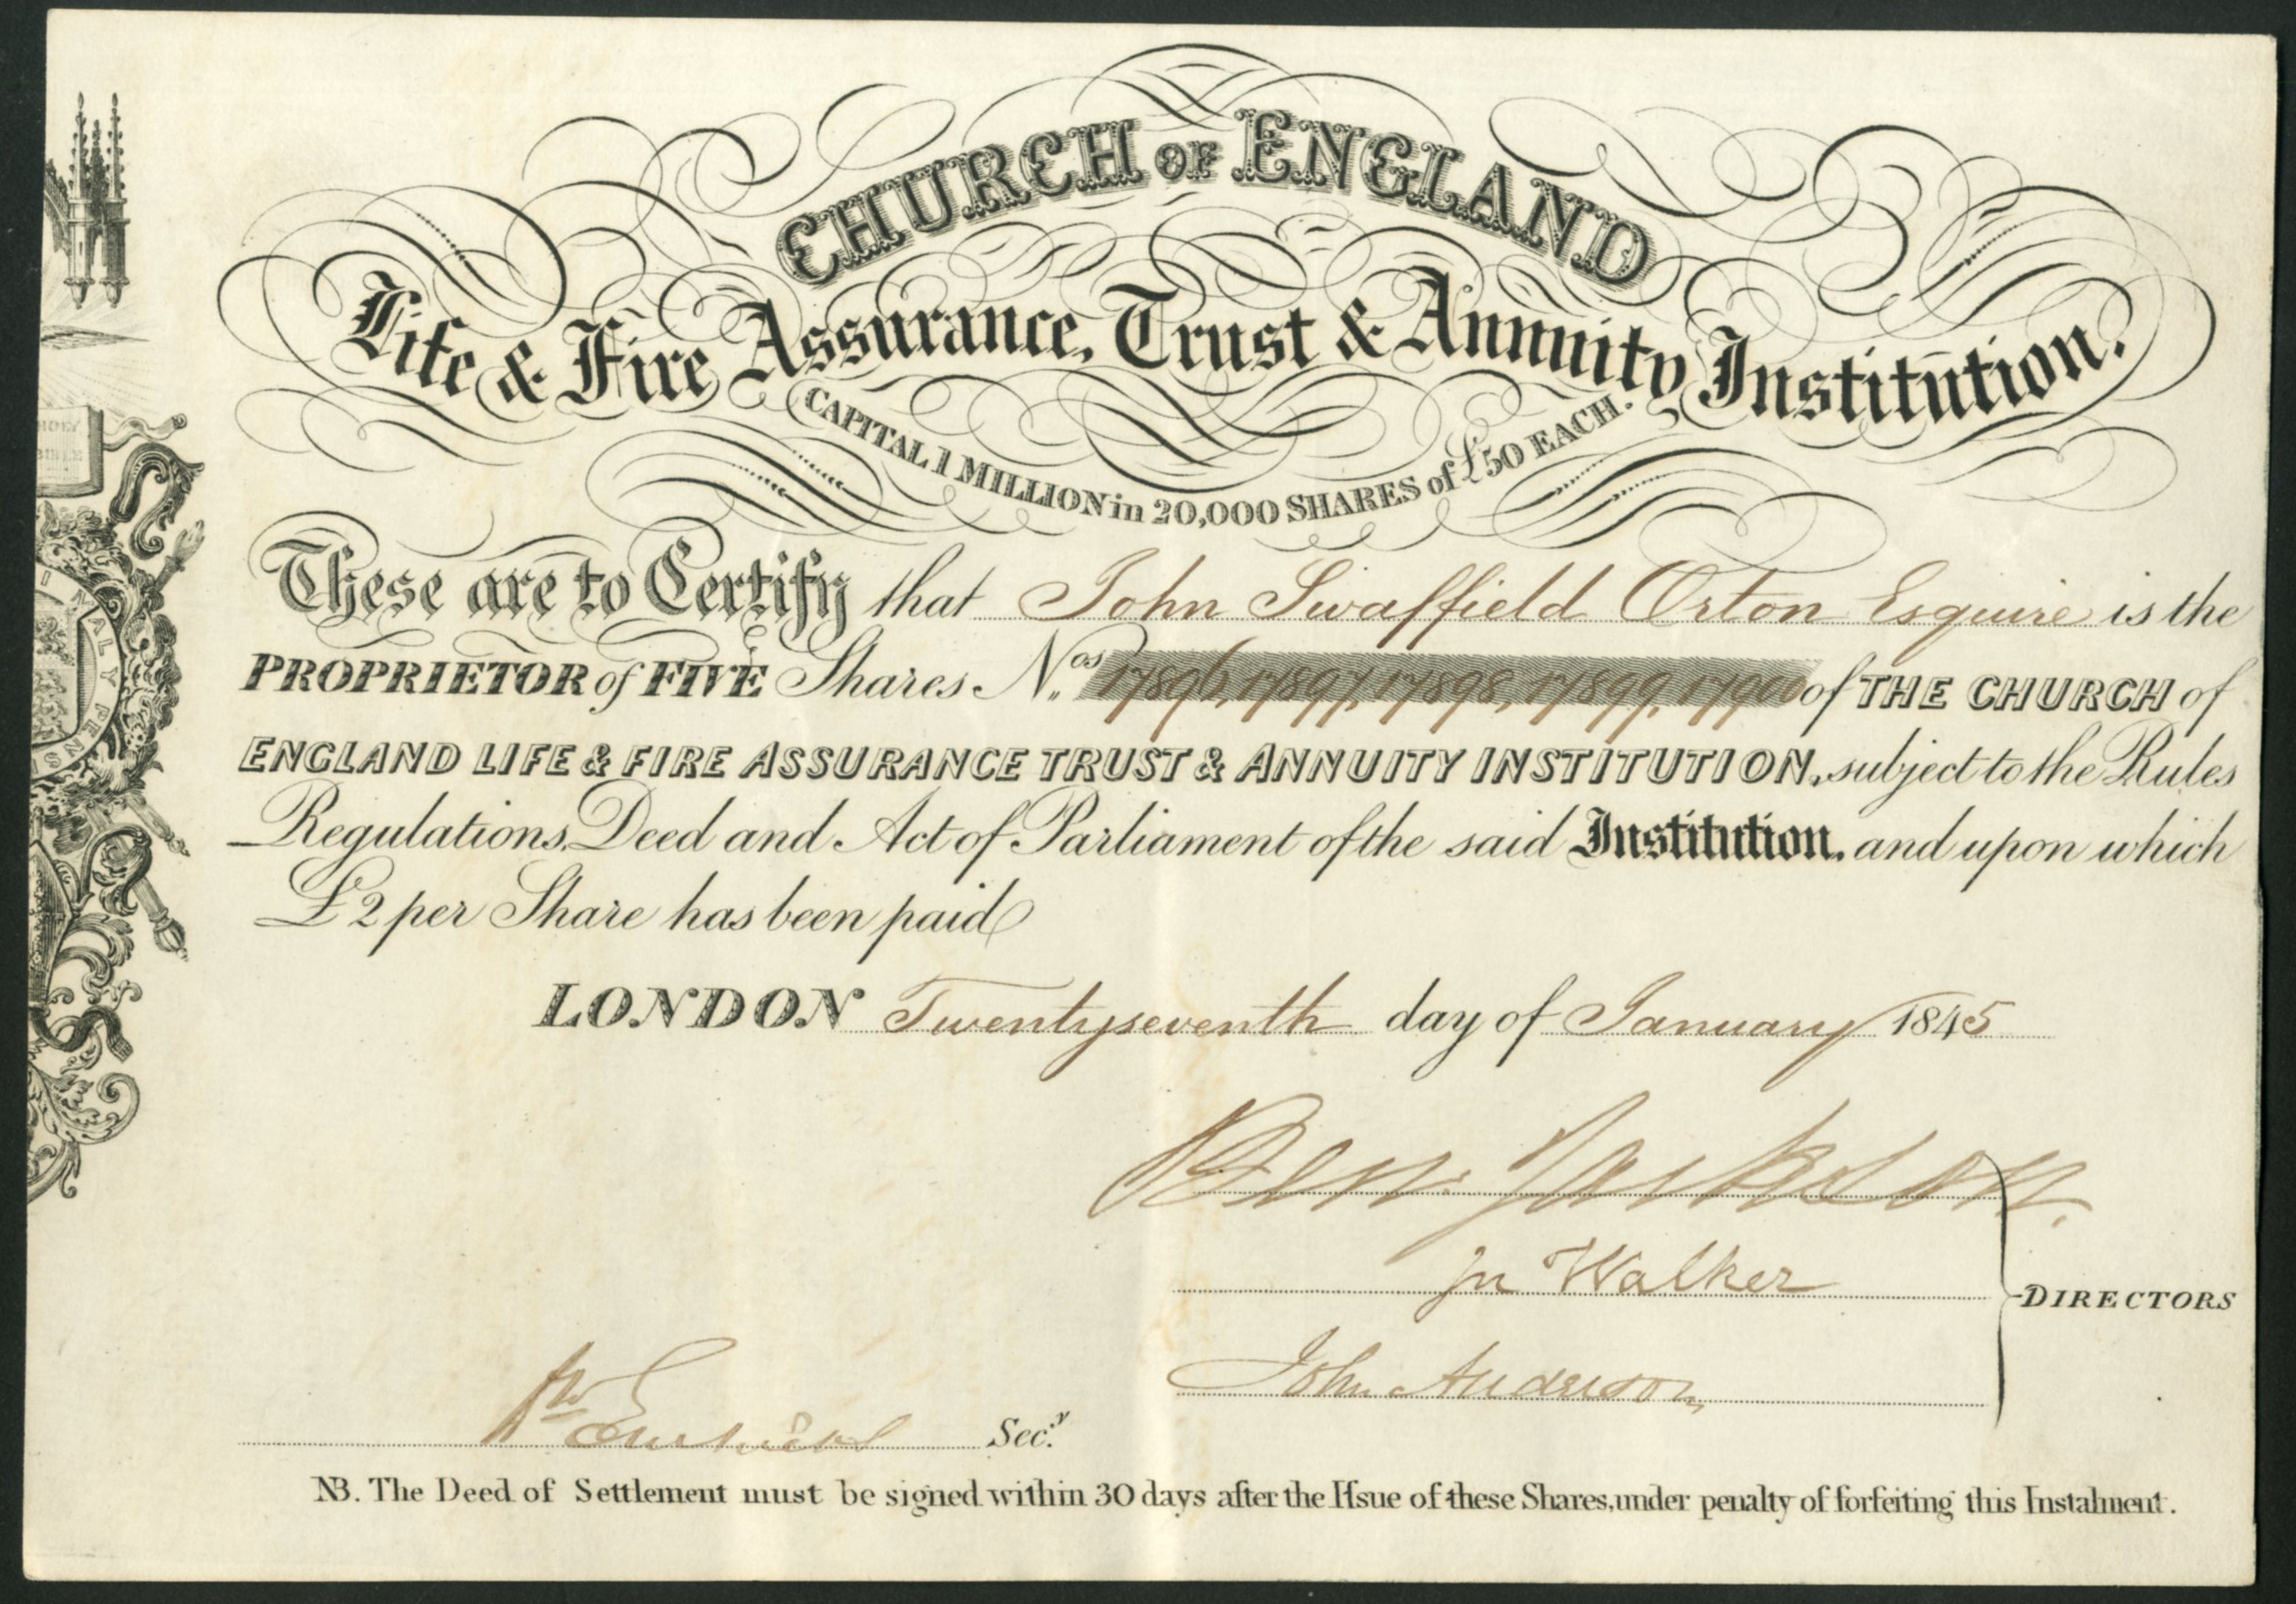 CHURCH OF ENGLAND
Life & Fire Assurance, Trust & Annuity Institution.
CAPITAL 1 MILLION in 20,000 SHARES of £50 EACH.
HOLY
BIBLE
These are to Certify that John Swaffield Orton Esquire is the
PROPRIETOR of FIVE Shares Nos. 17896, 17897, 17898, 17899, 17900 of THE CHURCH of
ENGLAND LIFE & FIRE ASSURANCE TRUST & ANNUITY INSTITUTION, subject to the Rules
Regulations, Deed and Act of Parliament of the said Institution, and upon which
£2 per Share has been paid
MAL Y PENS
LONDON Twentyseventh day of January 1845
Ben. Jackson.
Jn Walker
DIRECTORS
John Anderson
Wm Secy.
NB. The Deed of Settlement must be signed within 30 days after the Ifsue of these Shares, under penalty of forfeiting this Instalment.